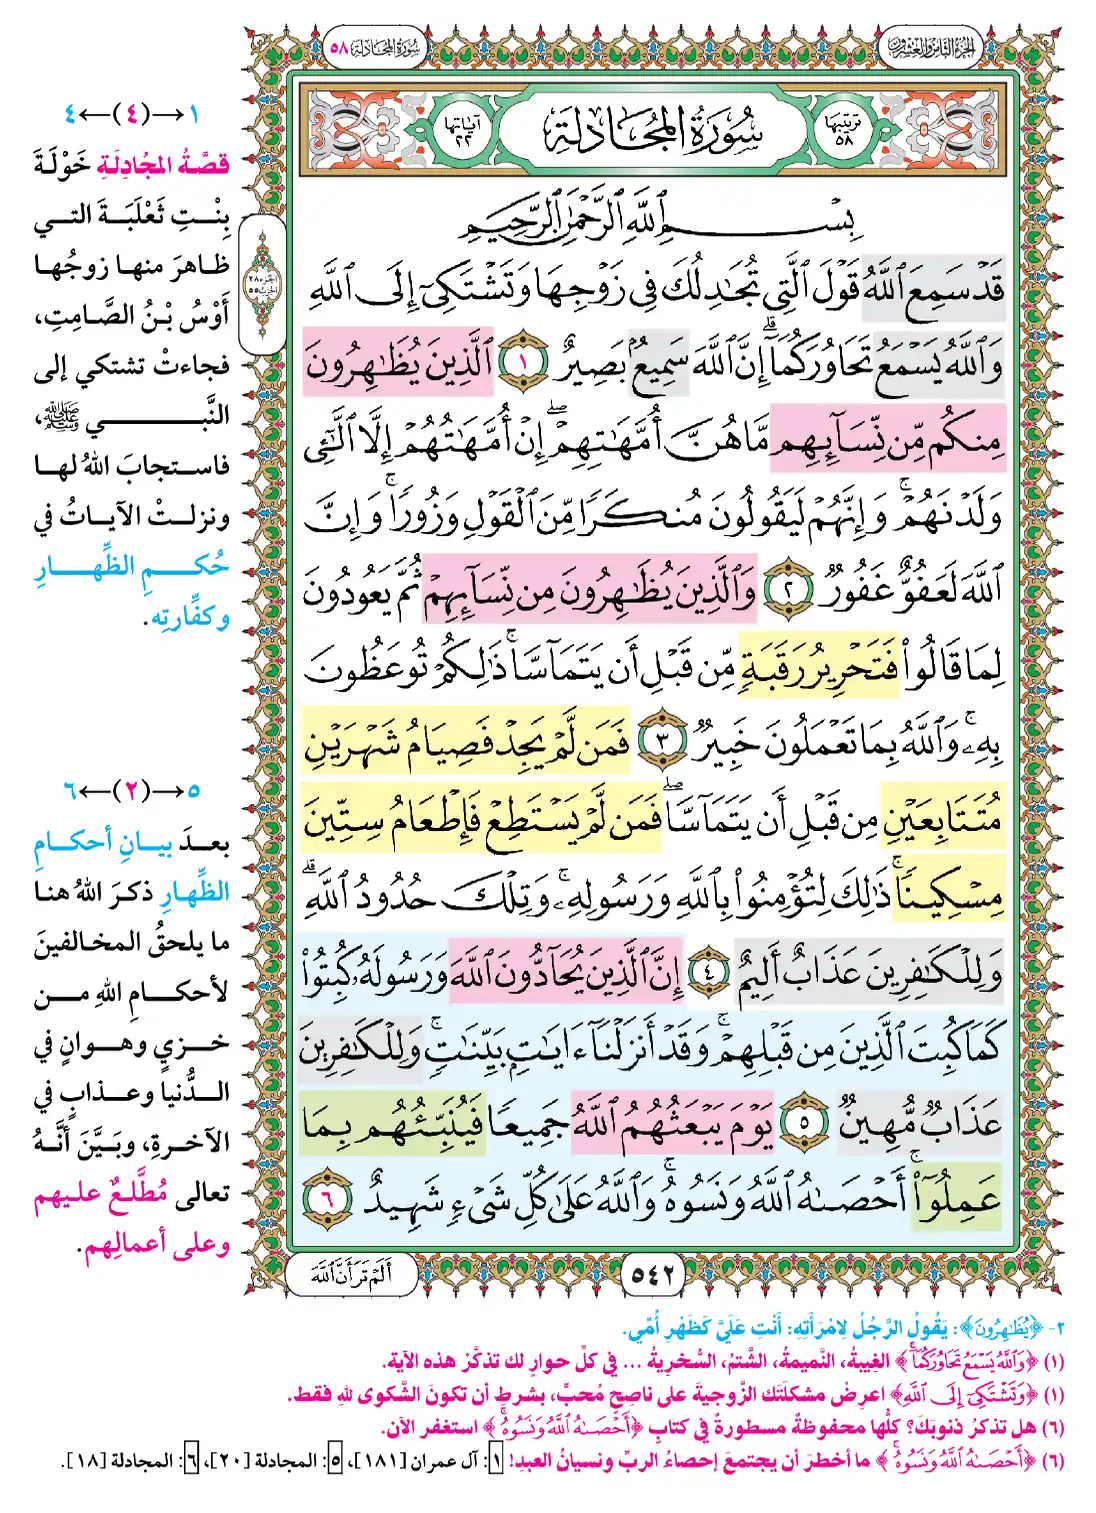 الجزء الثامن والعشرون
سورة المجادلة ٥٨
ترتيبها ٥٨
سُورَةُ المُجَادلَةِ
آياتها ٢٢
بِسْمِ ٱللَّهِ ٱلرَّحْمَٰنِ ٱلرَّحِيمِ
قَدْ سَمِعَ ٱللَّهُ قَوْلَ ٱلَّتِى تُجَٰدِلُكَ فِى زَوْجِهَا وَتَشْتَكِىٓ إِلَى ٱللَّهِ
وَٱللَّهُ يَسْمَعُ تَحَاوُرَكُمَآ ۚ إِنَّ ٱللَّهَ سَمِيعٌۢ بَصِيرٌ ١ ٱلَّذِينَ يُظَٰهِرُونَ
مِنكُم مِّن نِّسَآئِهِم مَّا هُنَّ أُمَّهَٰتِهِمْ ۖ إِنْ أُمَّهَٰتُهُمْ إِلَّا ٱلَّٰٓـِٔى
وَلَدْنَهُمْ ۚ وَإِنَّهُمْ لَيَقُولُونَ مُنكَرًا مِّنَ ٱلْقَوْلِ وَزُورًا ۚ وَإِنَّ
ٱللَّهَ لَعَفُوٌّ غَفُورٌ ٢ وَٱلَّذِينَ يُظَٰهِرُونَ مِن نِّسَآئِهِمْ ثُمَّ يَعُودُونَ
لِمَا قَالُوا۟ فَتَحْرِيرُ رَقَبَةٍ مِّن قَبْلِ أَن يَتَمَآسَّا ۚ ذَٰلِكُمْ تُوعَظُونَ
بِهِۦ ۚ وَٱللَّهُ بِمَا تَعْمَلُونَ خَبِيرٌ ٣ فَمَن لَّمْ يَجِدْ فَصِيَامُ شَهْرَيْنِ
مُتَتَابِعَيْنِ مِن قَبْلِ أَن يَتَمَآسَّا ۖ فَمَن لَّمْ يَسْتَطِعْ فَإِطْعَامُ سِتِّينَ
مِسْكِينًا ۚ ذَٰلِكَ لِتُؤْمِنُوا۟ بِٱللَّهِ وَرَسُولِهِۦ ۚ وَتِلْكَ حُدُودُ ٱللَّهِ ۗ
وَلِلْكَٰفِرِينَ عَذَابٌ أَلِيمٌ ٤ إِنَّ ٱلَّذِينَ يُحَآدُّونَ ٱللَّهَ وَرَسُولَهُۥ كُبِتُوا۟
كَمَا كُبِتَ ٱلَّذِينَ مِن قَبْلِهِمْ ۚ وَقَدْ أَنزَلْنَآ ءَايَٰتٍۭ بَيِّنَٰتٍ ۚ وَلِلْكَٰفِرِينَ
عَذَابٌ مُّهِينٌ ٥ يَوْمَ يَبْعَثُهُمُ ٱللَّهُ جَمِيعًا فَيُنَبِّئُهُم بِمَا
عَمِلُوٓا۟ ۚ أَحْصَىٰهُ ٱللَّهُ وَنَسُوهُ ۚ وَٱللَّهُ عَلَىٰ كُلِّ شَىْءٍ شَهِيدٌ ٦
٥٤٢
أَلَمْ تَرَ أَنَّ ٱللَّهَ
الجزء ٢٨
الحزب ٥٥
١→(٤)←٤
قصَّةُ المجُادِلَةِ خَوْلَةَ
بِنْتِ ثَعْلَبَةَ التي
ظاهرَ منها زوجُها
أَوْسُ بْنُ الصَّامِتِ،
فجاءتْ تشتكي إلى
النَّبي ﷺ،
فاستجابَ اللهُ لها
ونزلتْ الآياتُ في
حُكمِ الظِّهارِ
وكفَّارتِه.
٥→(٢)←٦
بعدَ بيانِ أحكامِ
الظِّهارِ ذكرَ اللهُ هنا
ما يلحقُ المخالفينَ
لأحكامِ اللهِ من
خزيٍ وهوانٍ في
الدُّنيا وعذابٍ في
الآخرةِ، وبَيَّنَ أنَّهُ
تعالى مُطَّلعٌ عليهم
وعلى أعمالِهم.
٢- ﴿يُظَٰهِرُونَ﴾: يَقُولُ الرَّجُلُ لِامْرَأَتِهِ: أَنْتِ عَلَيَّ كَظَهْرِ أُمِّي.
(١) ﴿وَٱللَّهُ يَسْمَعُ تَحَاوُرَكُمَآ﴾ الغِيبةُ، النَّميمةُ، الشَّتمُ، السُّخريةُ ... في كلِّ حوارٍ لك تذكَّرْ هذه الآية.
(١) ﴿وَتَشْتَكِىٓ إِلَى ٱللَّهِ﴾ اعرِضْ مشكلتَك الزَّوجيةَ على ناصحٍ مُحبٍّ، بشرطِ أن تكونَ الشَّكوى للهِ فقط.
(٦) هل تذكرُ ذنوبَكَ؟ كلُّها محفوظةٌ مسطورةٌ في كتابٍ ﴿أَحْصَىٰهُ ٱللَّهُ وَنَسُوهُ ۚ﴾ استغفر الآن.
(٦) ﴿أَحْصَىٰهُ ٱللَّهُ وَنَسُوهُ ۚ﴾ ما أخطرَ أن يجتمعَ إحصاءُ الربِّ ونسيانُ العبدِ! ١: آل عمران [١٨١]، ٥: المجادلة [٢٠]، ٦: المجادلة [١٨].